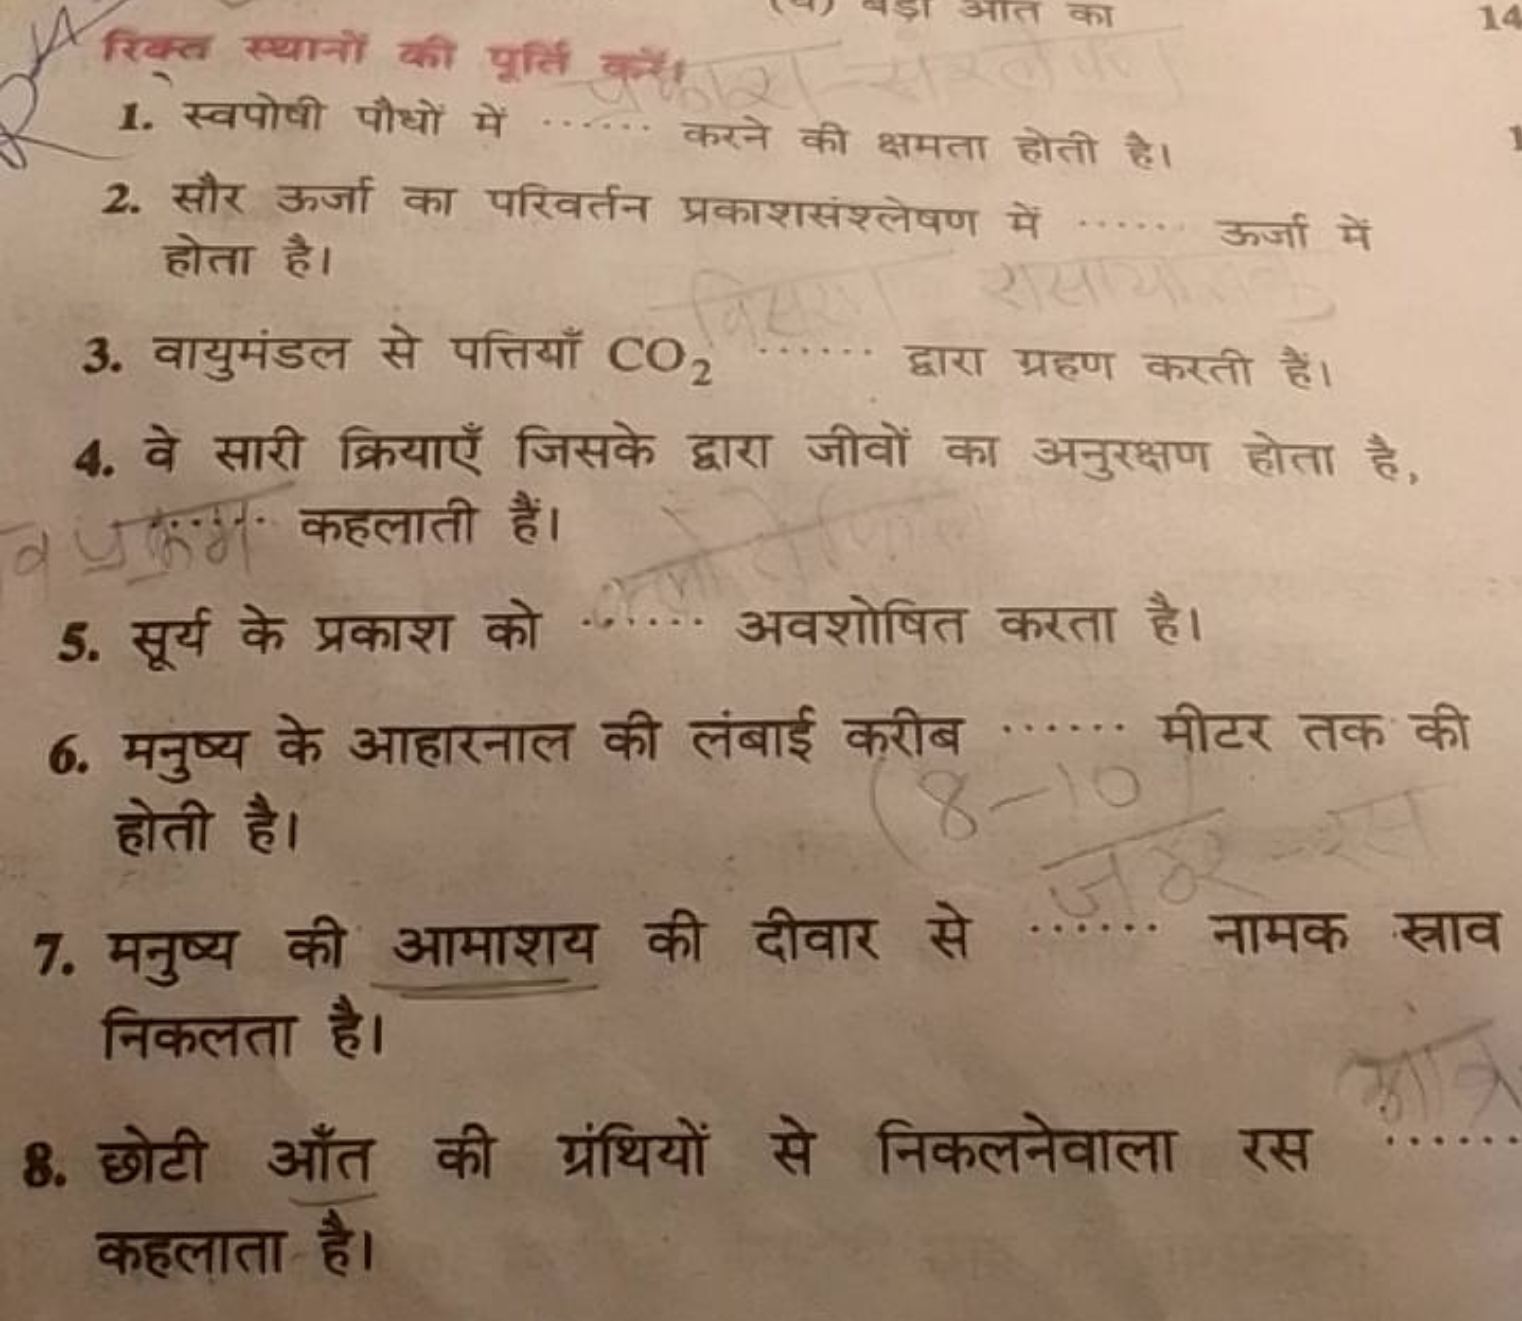 बड़ी आँत का
14
रिक्त स्थानों की पूर्ति करें।
प्रकाश-संश्लेषण
1. स्वपोषी पौधों में ...... करने की क्षमता होती है।
2. सौर ऊर्जा का परिवर्तन प्रकाशसंश्लेषण में ...... ऊर्जा में
होता है।
विसरण रासायनिक
3. वायुमंडल से पत्तियाँ CO₂ ...... द्वारा ग्रहण करती हैं।
4. वे सारी क्रियाएँ जिसके द्वारा जीवों का अनुरक्षण होता है,
...... कहलाती हैं।
व प्रक्रम
5. सूर्य के प्रकाश को ...... अवशोषित करता है।
6. मनुष्य के आहारनाल की लंबाई करीब ...... मीटर तक की
(8-10)
होती है।
जठर-रस
7. मनुष्य की आमाशय की दीवार से ...... नामक स्राव
निकलता है।
8. छोटी आँत की ग्रंथियों से निकलनेवाला रस ......
कहलाता है।